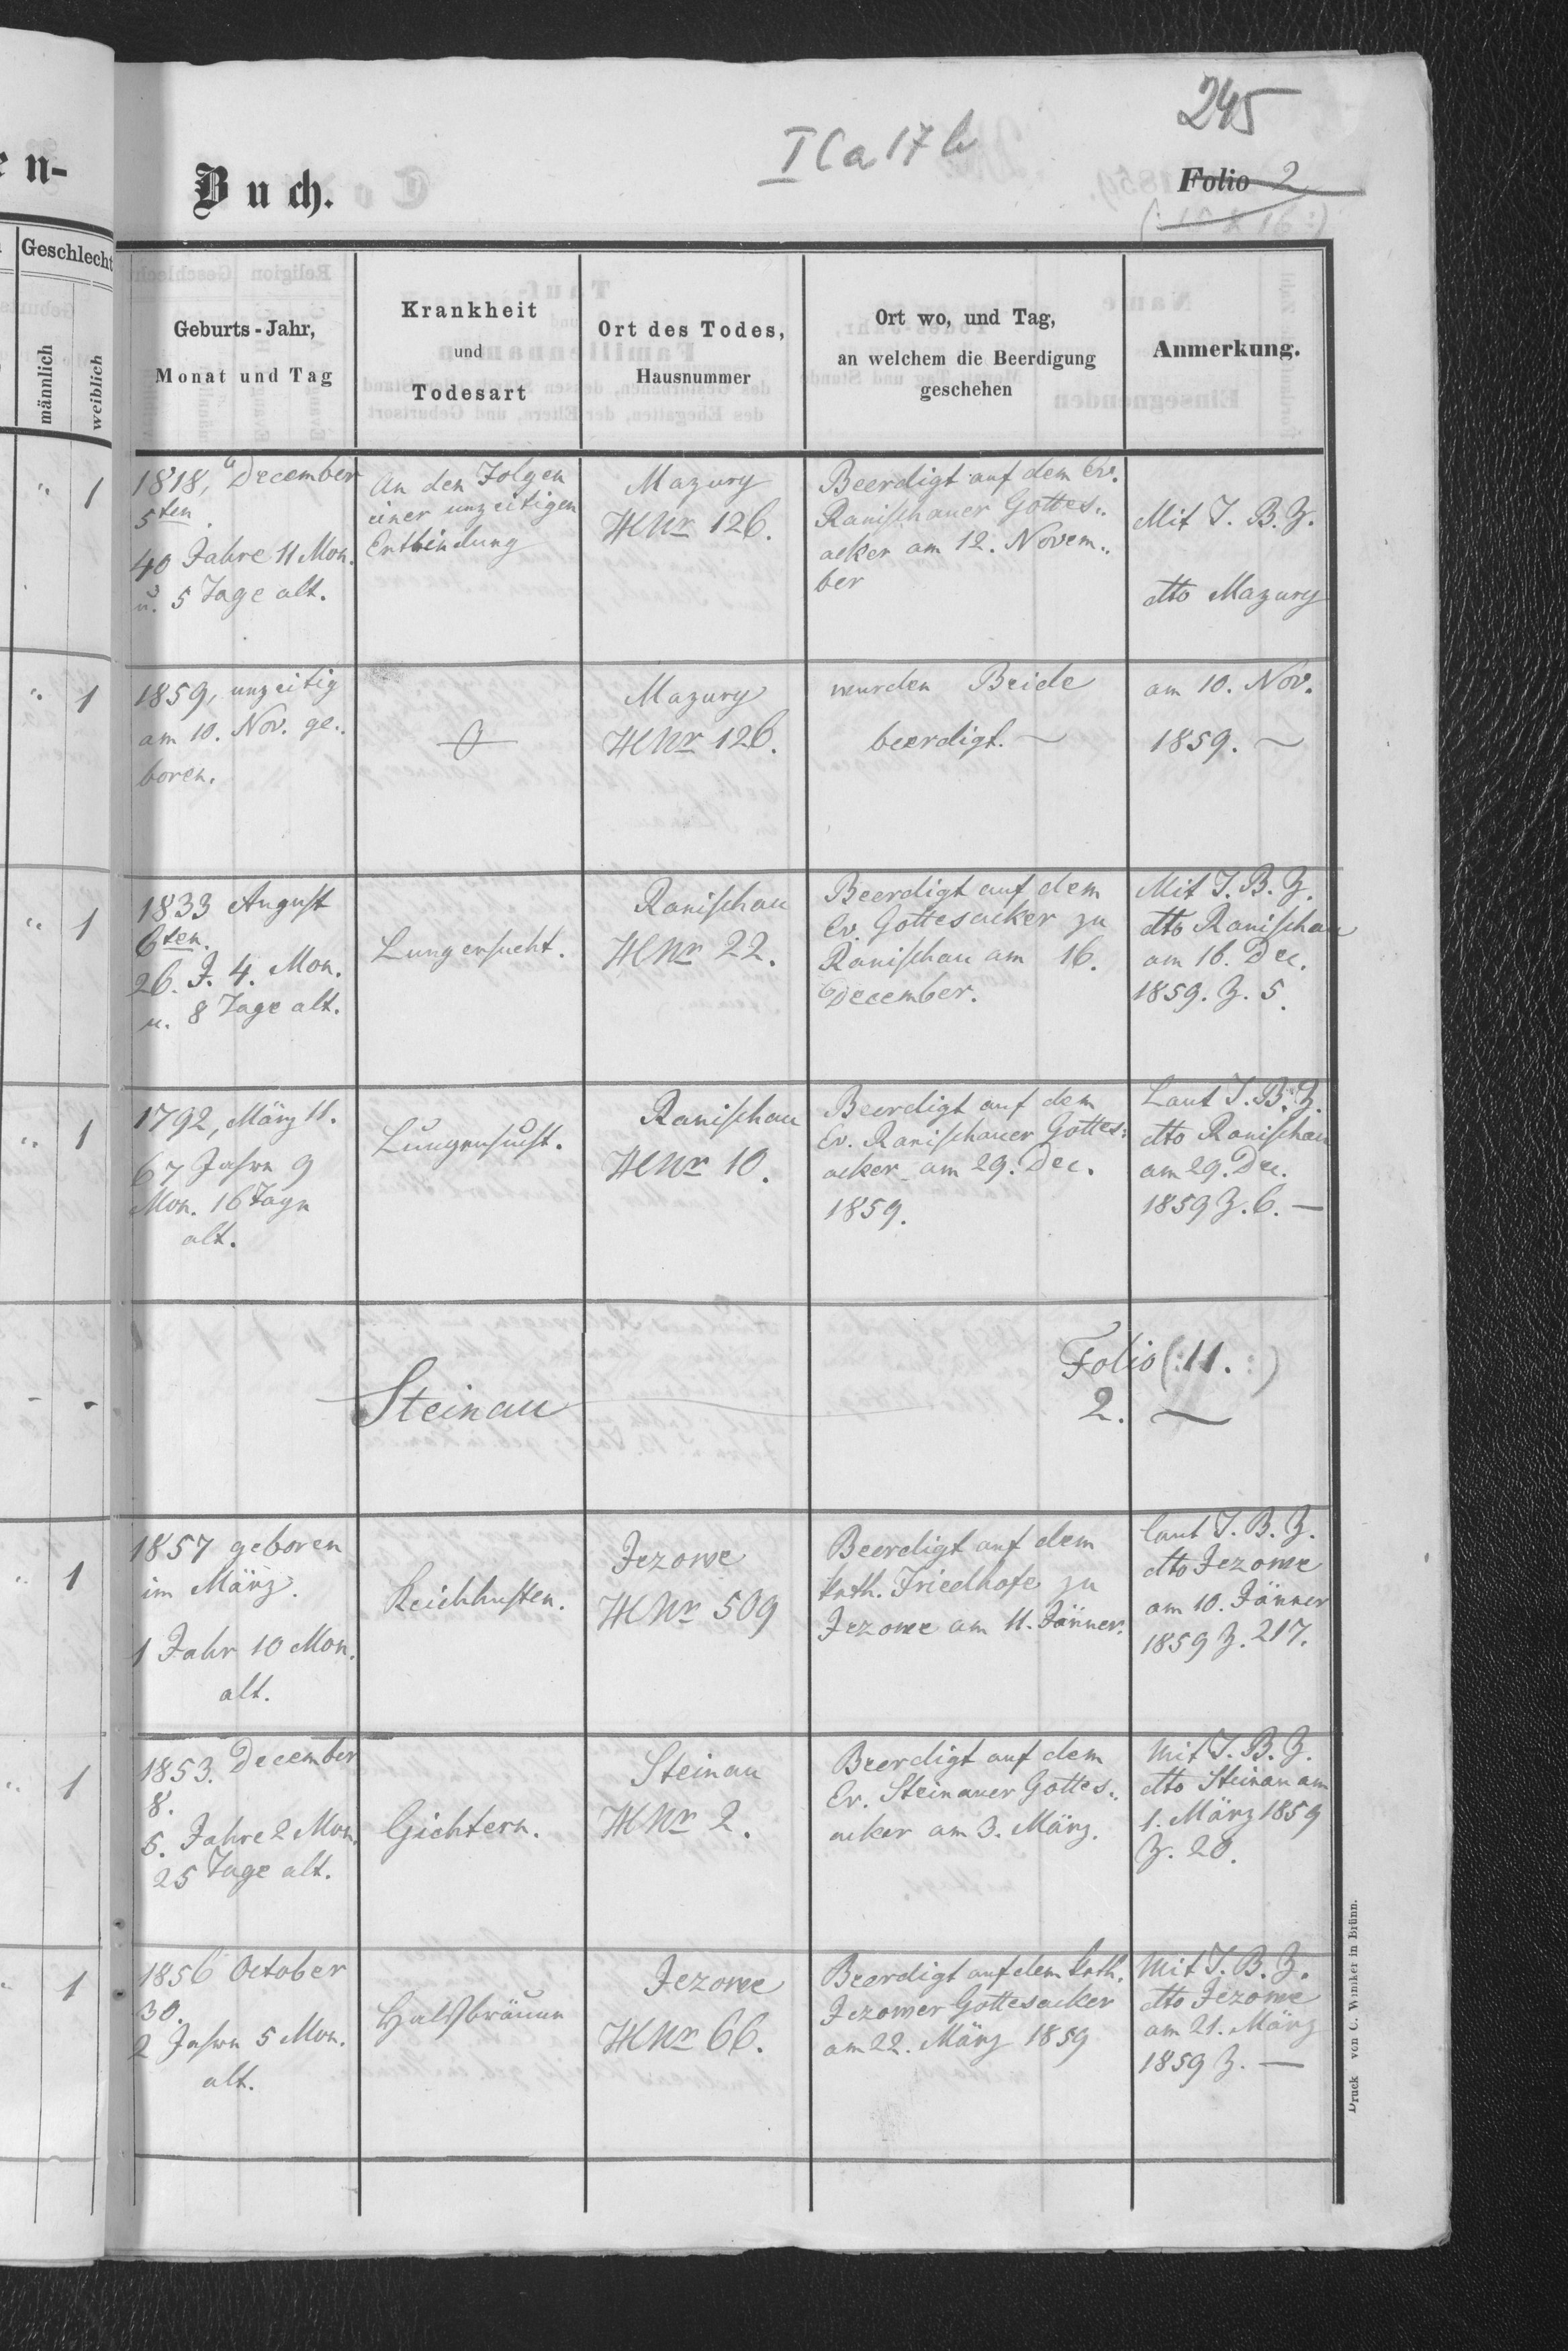 245
I C a 17 b
n-
Buch.
Folio 2
(: 15 & 16 :)
Geschlecht
männlich
weiblich
Geburts-Jahr,
Monat und Tag
Krankheit
und
Todesart
Ort des Todes,
Hausnummer
Ort wo, und Tag,
an welchem die Beerdigung
geschehen
Anmerkung.
" 1
1818, December
5ten
40 Jahre 11 Mon.
u. 5 Tage alt.
An den Folgen
einer unzeitigen
Entbindung
Mazury
HNr 126.
Beerdigt auf dem Ev.
Ranischauer Gottes-
acker am 12. Novem-
ber
Mit T. B. Z.
dto Mazury
" 1
1859, unzeitig
am 10. Nov. ge-
boren.
Mazury
HNr 126.
wurden Beide
beerdigt.
am 10. Nov.
1859.
" 1
1833 August
6ten.
26. J. 4. Mon.
u. 8 Tage alt.
Lungensucht.
Ranischau
HNr 22.
Beerdigt auf dem
Ev. Gottesacker zu
Ranischau am 16.
December.
Mit T. B. Z.
dto Ranischau
am 16. Dec.
1859. Z. 5.
" 1
1792, März 11.
67 Jahre 9
Mon. 16 Tage
alt.
Lungensucht.
Ranischau
HNr 10.
Beerdigt auf dem
Ev. Ranischauer Gottes-
acker am 29. Dec.
1859.
Laut T. B. Z.
dto Ranischau
am 29. Dec.
1859 Z. 6. —
- -
Steinau
Folio (: 11. :)
2.
" 1
1857 geboren
im März.
1 Jahr 10 Mon.
alt.
Keichhusten.
Jezowe
HNr 509
Beerdigt auf dem
kath. Friedhofe zu
Jezowe am 11. Jänner.
laut T. B. Z.
dto Jezowe
am 10. Jänner
1859 Z. 217.
" 1
1853. December
8.
5. Jahre 2 Mon.
25 Tage alt.
Gichtern.
Steinau
HNr 2.
Beerdigt auf dem
Ev. Steinauer Gottes-
acker am 3. März.
Mit T. B. Z.
dto Steinau am
1. März 1859
Z. 20.
" 1
1856 October
30.
2 Jahre 5 Mon.
alt.
Halsbräune
Jezowe
HNr 66.
Beerdigt auf dem kath.
Jezower Gottesacker
am 22. März 1859
Mit T. B. Z.
dto Jezowe
am 21. März
1859 Z. —
Druck von C. Winiker in Brünn.